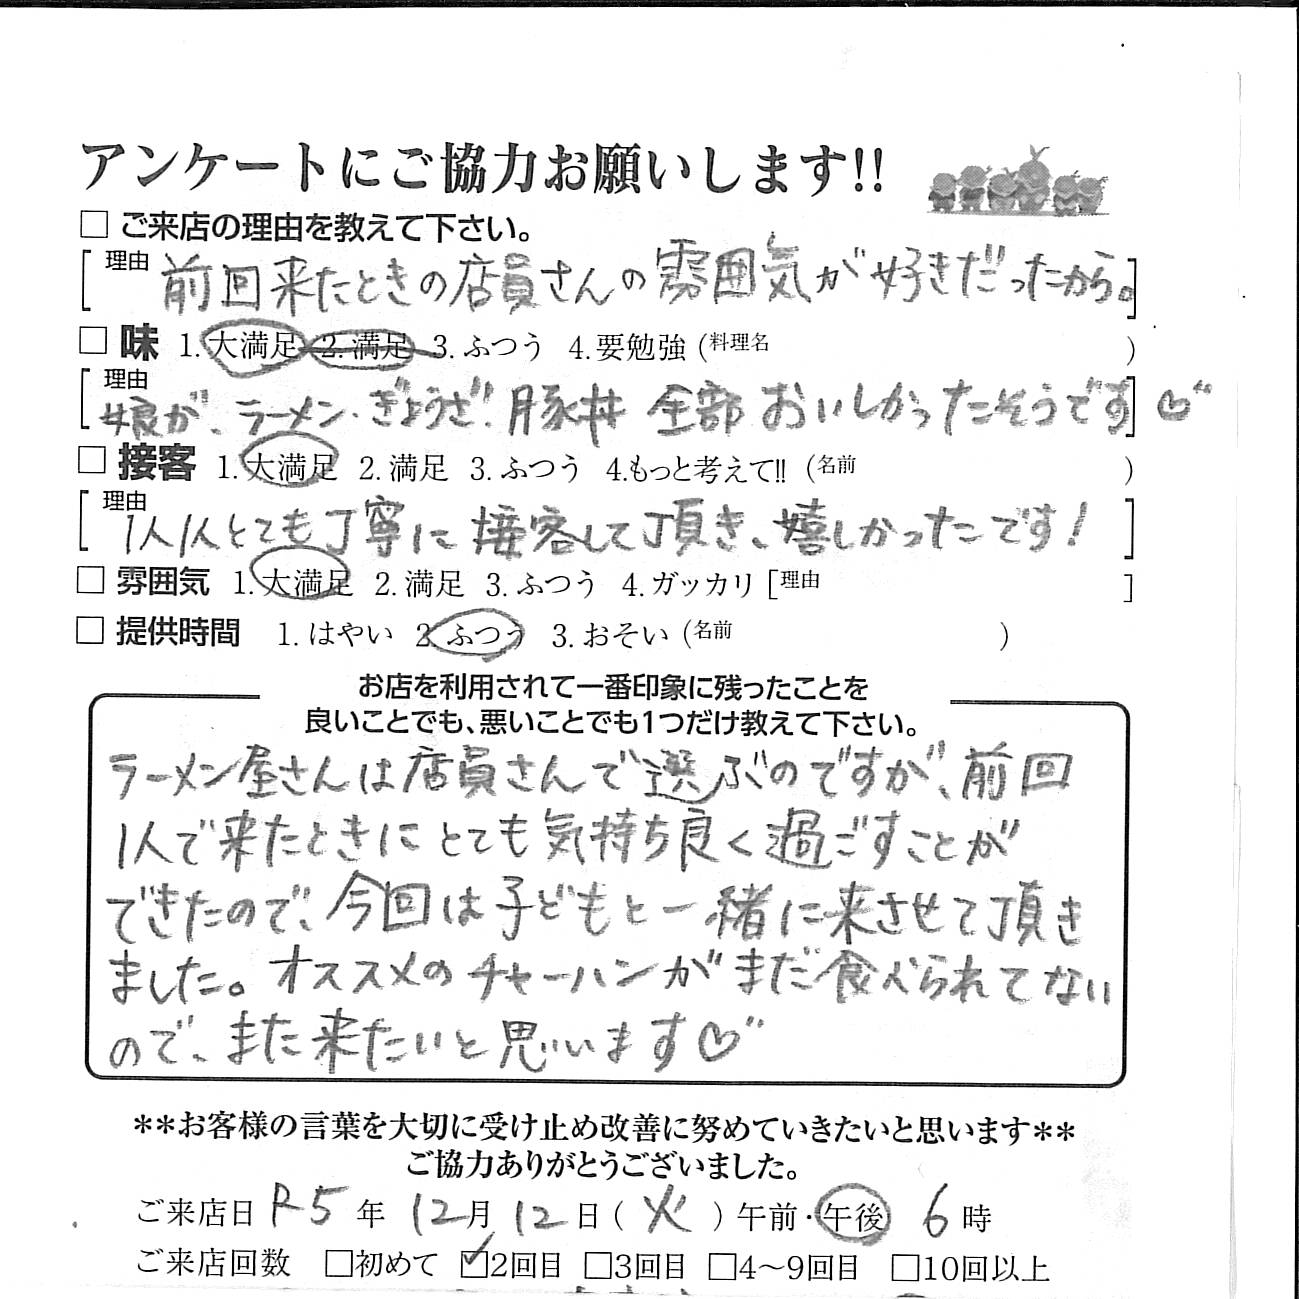 アンケートにご協力お願いします!!
□ ご来店の理由を教えて下さい。
[理由 前回来たときの店員さんの雰囲気が好きだったから。]
□ 味 1.大満足 2.満足 3.ふつう 4.要勉強 (料理名 )
[理由 娘が、ラーメン・ぎょうざ、豚丼 全部 おいしかったそうです♡]
□ 接客 1.大満足 2.満足 3.ふつう 4.もっと考えて!! (名前 )
[理由 1人1人とても丁寧に接客して頂き、嬉しかったです!]
□ 雰囲気 1.大満足 2.満足 3.ふつう 4.ガッカリ [理由 ]
□ 提供時間 1.はやい 2.ふつう 3.おそい (名前 )
お店を利用されて一番印象に残ったことを
良いことでも、悪いことでも1つだけ教えて下さい。
ラーメン屋さんは店員さんで選ぶのですが、前回
1人で来たときにとても気持ち良く過ごすことが
できたので、今回は子どもと一緒に来させて頂き
ました。オススメのチャーハンがまだ食べられてない
ので、また来たいと思います♡
**お客様の言葉を大切に受け止め改善に努めていきたいと思います**
ご協力ありがとうございました。
ご来店日 R5年 12月 12日 (火) 午前・午後 6時
ご来店回数 □初めて ☑2回目 □3回目 □4〜9回目 □10回以上